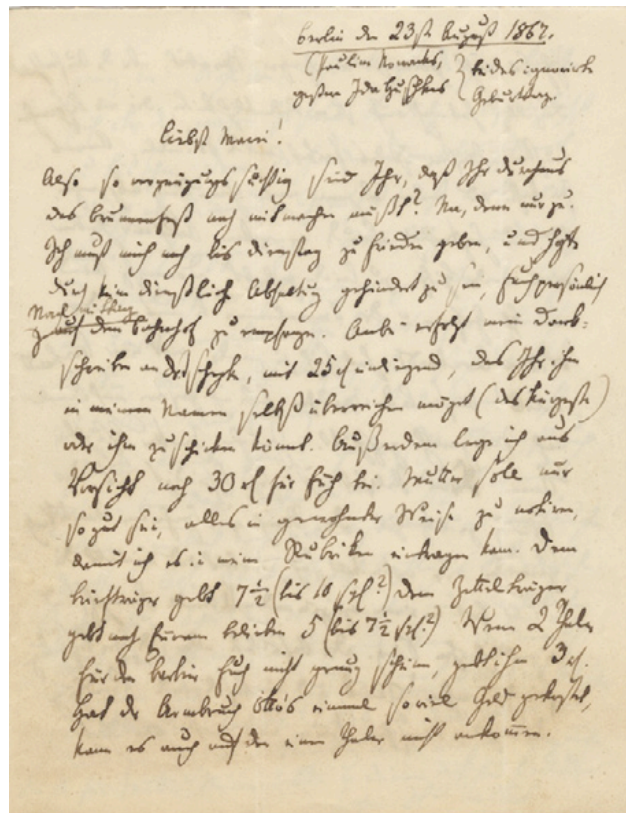 Berlin den 23st August 1867.
(Paulin Nowacks,
gestern Ida Huschkes } beides ignorirte
Geburtstage.
Liebste Marie!
Also so vergnügungssüchtig seid Ihr, daß Ihr durchaus
das Brunnenfest noch mitmachen müßt? Na, denn nur zu.
Ich muß mich noch bis Dienstag zufrieden geben, und hoffe
durch kein dienstlich Abhaltung gehindert zu sein, Euch persönlich
auf dem Bahnhof zu empfangen. Anbei erfolgt mein Dank-
schreiben an, mit 25 rl einliegend, das Ihr ihm
in meinem Namen selbst überreichen möget (das Klügste)
oder ihm zuschicken könnt. Außerdem lege ich aus
Vorsicht noch 30 rl für Euch bei. Mutter soll nur
so gut sein, alles in gewohnter Weise zu notiren,
damit ich es in mein Rubriken eintragen kann. Dem
gebt 7 1/2 (bis 10 sgl.?) dem Zettelträger
gebt nach Eurem Belieben 5 (bis 7 1/2 sgl.?) Wenn 2 Thaler
für den Euch nicht genug schein, gebt ihm 3 rl.
Hat der Armbruch Otto's einmal so viel Geld gekostet,
kann es auch auf den einen Thaler nicht ankommen.